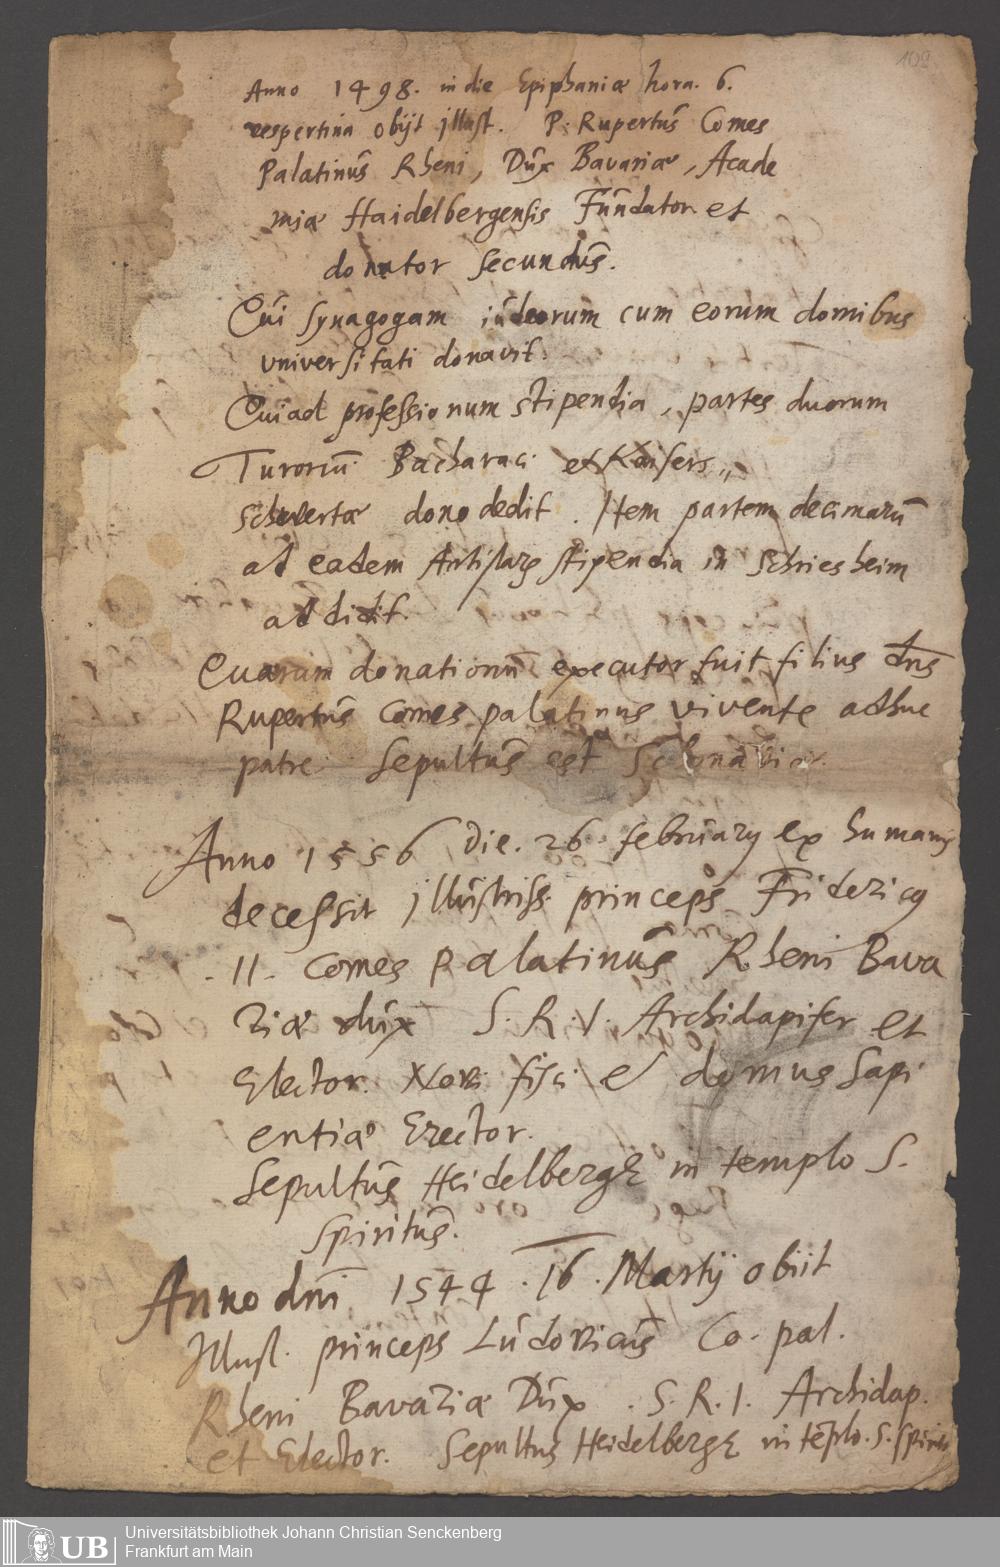 102
Anno 1498. in die Epiphaniæ hora. 6.
vespertina obijt jllust. P. Rupertus Comes
Palatinus Rheni, Dux Bavariæ, Acade
miæ Haidelbergensis Fundator et
donator secundus.
Cui synagogam iudeorum cum eorum domibus
universitati donavit.
Cui ad professionum stipendia, partes duorum
Bacharaci et Kaisers„
dono dedit. Item partem decimarum
ad eadem stipendia in Schriesheim
addidit.
Quarum donationum executor fuit filius dns
Rupertus Comes palatinus vivente adhuc
patre. Sepultus est
Anno 1556 Die. 26 february ex humanis
decessit jllustriss. princeps Fridericus
II. Comes Palatinus Rheni Bava
riæ dux S. R. I. Archidapifer et
Elector. Novi fisci et domus sapi
entiæ Erector.
Sepultus Heidelbergæ in templo S.
spiritus.
Anno dni 1544. 16. Martij obiit
Illust. princeps Ludovicus Co. pal.
Rheni Bavariæ Dux. S. R. I. Archidap.
et Elector. Sepultus Heidelbergæ in teplo. S. spiritus
UB
Universitätsbibliothek Johann Christian Senckenberg
Frankfurt am Main